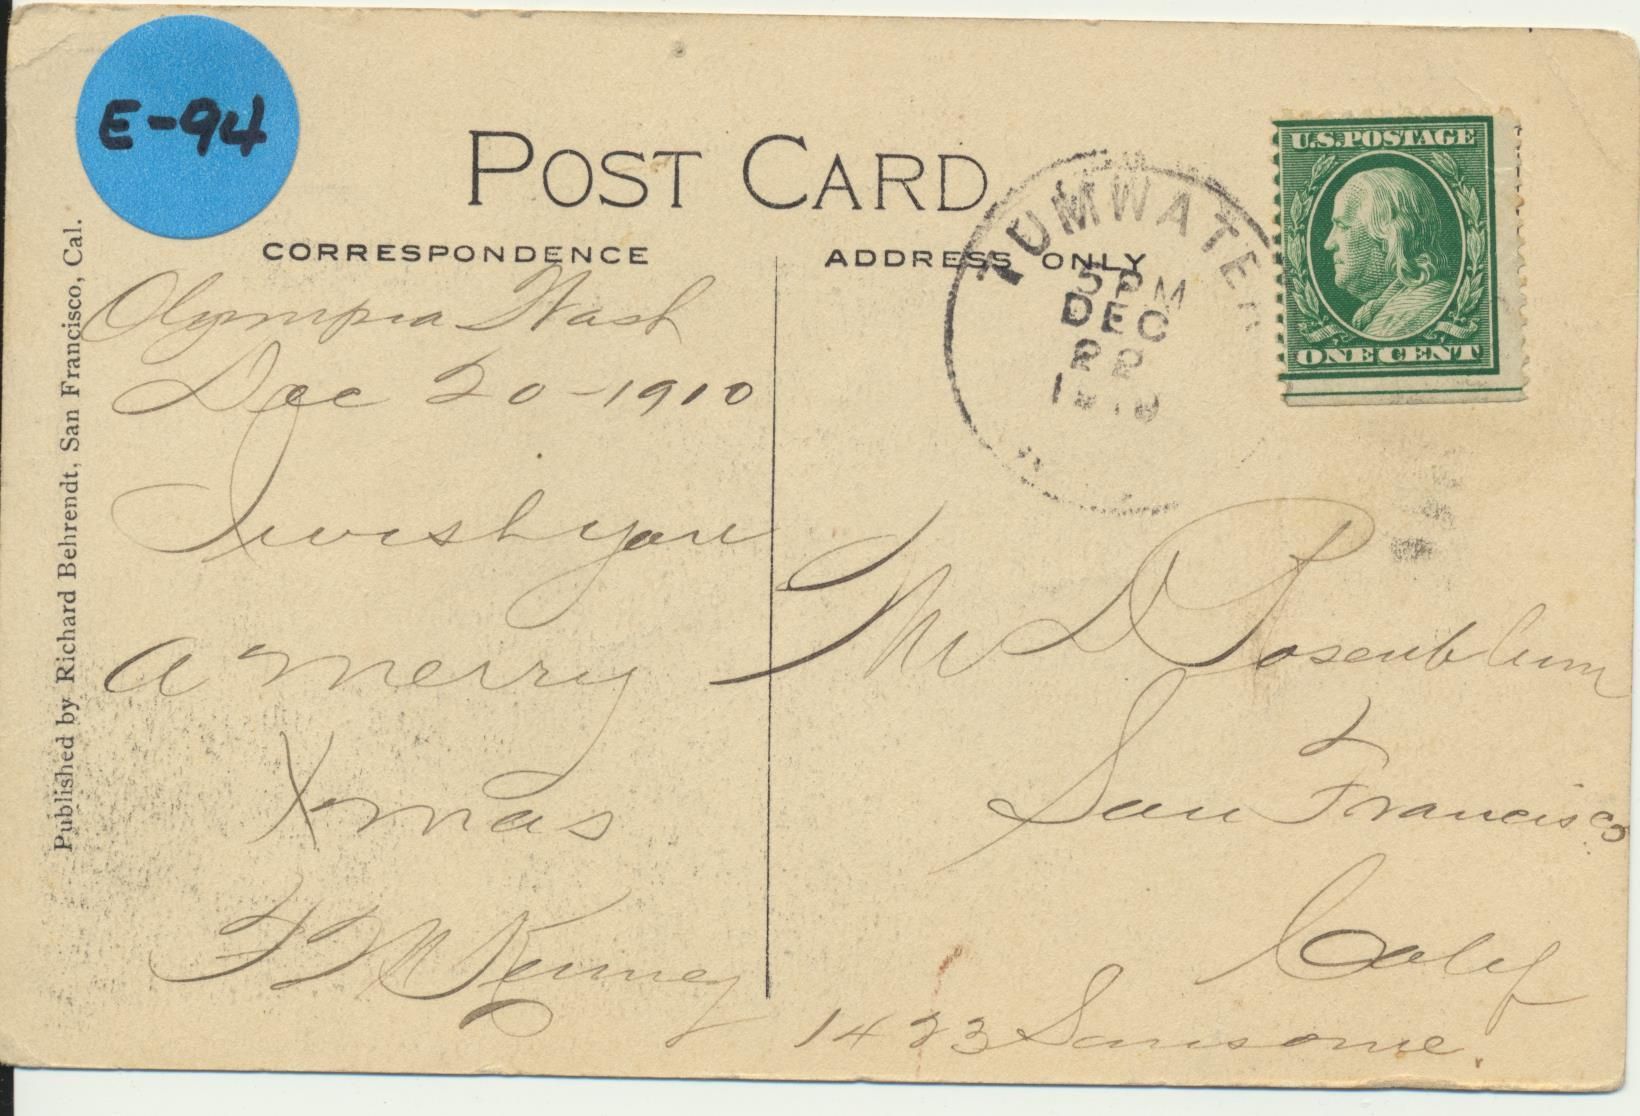 E-94
POST CARD
CORRESPONDENCE
ADDRESS ONLY
Published by Richard Behrendt, San Francisco, Cal.
TUMWATER
5 PM
DEC
22
U.S. POSTAGE
ONE CENT
Olympia Wash
Dec 20-1910
I wish you
a merry
Xmas
Kenney
D Rosenblum
San Francisco
Calif
1423 Sansome.